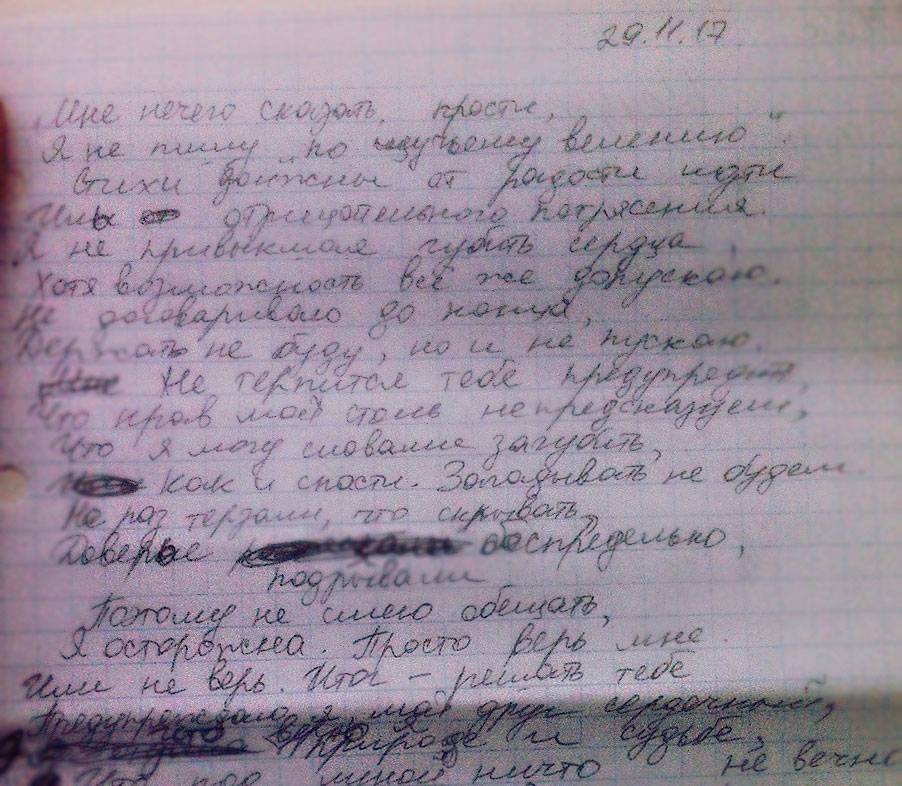 29.11.17
Мне нечего сказать, прости,
Я не пишу "по щучьему велению".
Стихи должны от радости идти
Иль отрицательного потрясения.
Я не привыкшая губить сердца,
Хотя возможность всё же допускаю.
Не договариваю до конца,
Держать не буду, но и не пускаю.
Не терпится тебе предупредить,
Что нрав мой столь непредсказуем,
Что я могу словами загубить,
Как и спасти. Загадывать не будем
Не раз терзали, что скрывать,
Доверье беспредельно,
подрывали
Поэтому не смею обещать,
Я осторожна. Просто верь мне.
Или не верь. Итог – решать тебе
Предупреждаю я, мой друг сердечный,
природе и судьбе,
Что под луной ничто не вечно